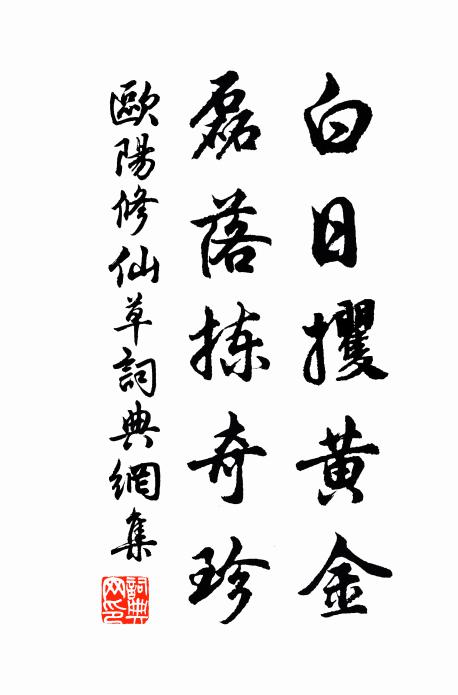 白日攫黄金
磊落揀奇珍
歐陽修仙草詞典網集
詞典網印